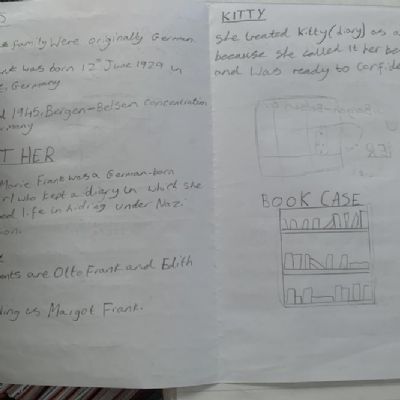 S
family were originally German
was born 12th June 1929 in
, Germany
1945, Bergen-Belsen concentration
many
T HER
Marie Frank was a German-born
irl who kept a diary in which she
ed life in hiding under Nazi
ion.
ents are Otto Frank and Edith
ling is Margot Frank.
KITTY
She treated Kitty (diary) as a
because she called it her be
and was ready to confide
BOOK CASE